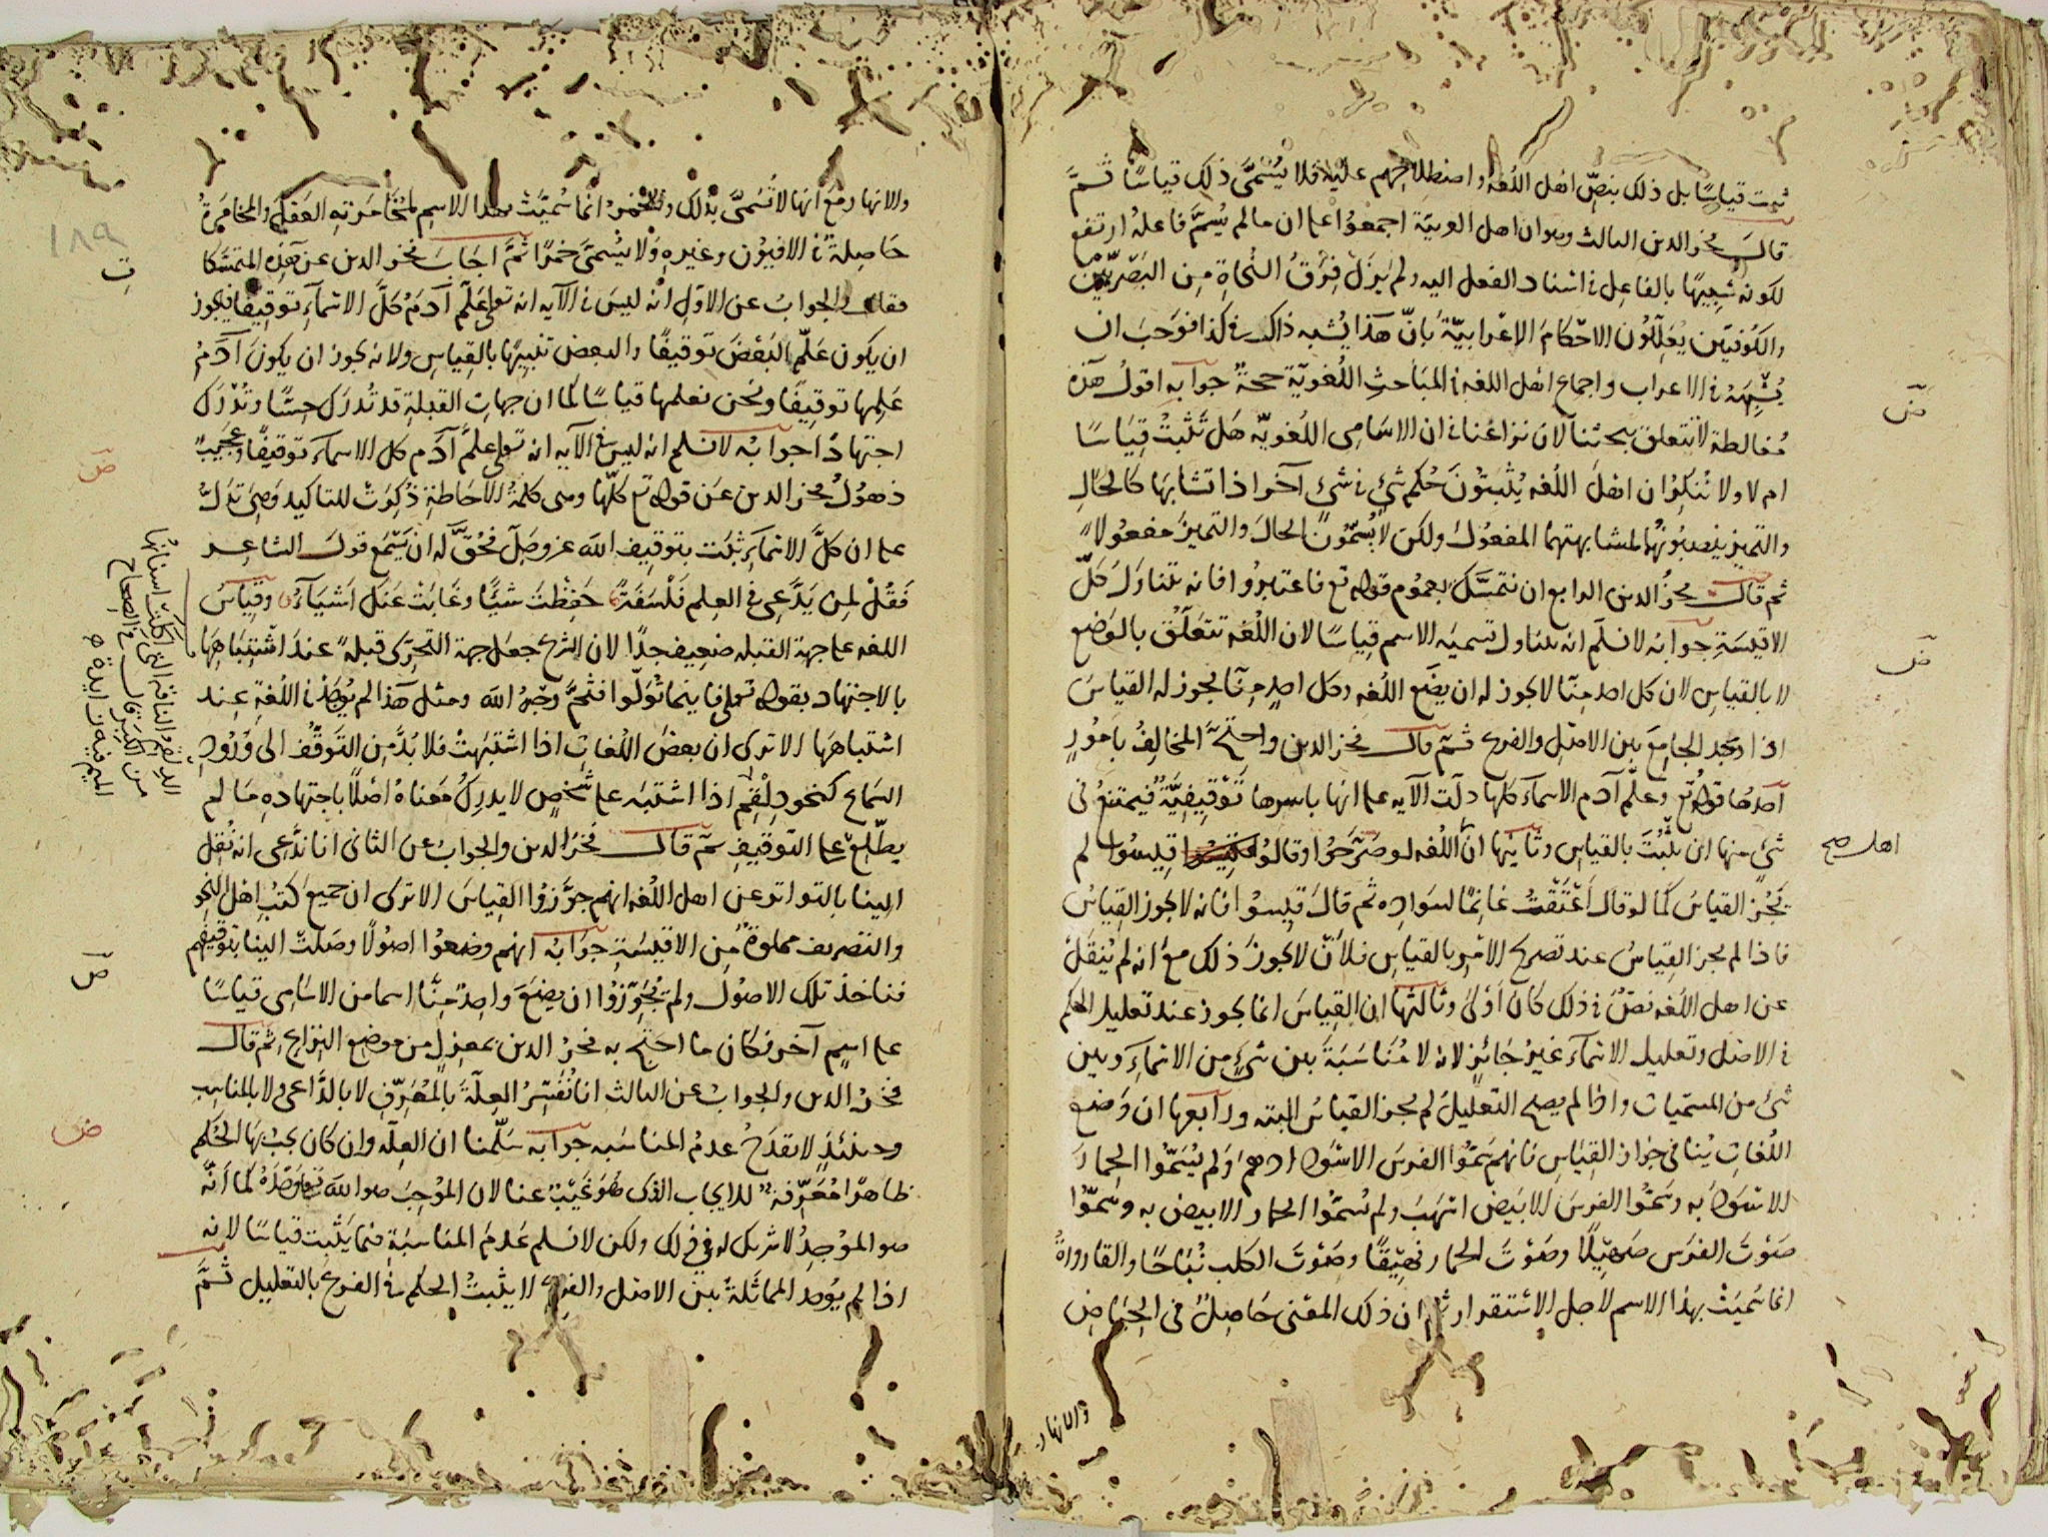 ثبت قياسًا بل ذلك بنصّ اهل اللغة واصطلاحهم عليه فلا يُسَمَّى ذلك قياسًا ثمَّ
قالَ فخر الدين الثالث وهو ان اهل العربيّة اجمعوا على ان ما لم يُسَمَّ فاعله ارتفع
لكونه شبيهًا بالفاعِل في اسناد الفعل اليه ولم يزل فِرَقُ النُحاةِ مِن البَصْريِّين
والكُوفيّين يُعَلِّلُون الاحكامَ الاِعْرابيّةَ بانّ هذا يُشبه ذاك في كذا فوَجَبَ ان
يُشْبِهَهُ في الاعراب واجماع اهل اللغه في المَباحثِ اللُغويّة حجةٌ جوابه اقولُ هذه
مُغالطة لا تتعلق ببحثنا لان نزاعنا في ان الاسَامى اللُغويّه هَل تَثْبتُ قِيَاسًا
ام لا ولا نُنكِرُ ان اهلَ اللُغه يُثْبتُونَ حُكم شيءٍ في شيءٍ آخر اذا تشابها كالحالِ
والتمييز ينصبُونهُما لمشابهتهما المفعُولَ ولكن لا يُسَمّونَ الحالَ والتمييزَ مفعُولا
ثم قالَ فخرُ الدين الرابع ان نتمسَّكَ بعمُوم قوله تع فاعتبرُوا فانه تتناوَلَ كلّ
الاقيسَةِ جوابه لا نسلّم انه يتناول تسميَه الاسم قِياسًا لان اللُغه تتعَلَّقُ بالوَضْع
لا بالقياسِ لان كل احد مِنّا لا يجوز له ان يضَع اللُغه وكل احدٍ مِنّا يجوز له القياسَ
اذا وَجَد الجامِعَ بين الاصْلِ والفرع ثمّ قالَ فخر الدين واحتجَّ المخالِفُ بامُورٍ
احدُها قوله تع وعَلّم آدم الاسماء كلها دلّت الآيه على انها باسرها تَوْقِيفِيَّةٌ فيمتنعُ في
شيءٍ منها ان يثْبُتَ بالقياسِ وثانيها انّ اهل اللُغه لو صَرّحَوا وقالُوا قِيسُوا لم
يَجُز القياسُ كما لو قال اَعْتَقْتُ غانِمًا لسَوادِه ثم قالَ قيسُوا فانه لا يجوز القِياسُ
فاذا لم يجز القِياسُ عند تصريح الامْرِ بالقياسِ فلاَنْ لا يجوز ذلك معَ انه لم يُنقَل
عن اهل اللُغه نصٌّ في ذلك كانَ اَوْلىٰ وثالثها ان القِياسَ انما يجوز عند تعليل الحكم
في الاصْل وتعليل الاسماء غيرُ جَائِزٍ لانه لا مُنَاسَبَةَ بين شيءٍ من الاسماءِ وبين
شيءٍ من المسمّيات واذا لم يصح التعليلُ لم يجز القياسُ البته ورابعها ان وَضعَ
اللُغاتِ يُنافى جَوازَ القياسِ فانهم سَمَّوا الفرسَ الاسْوَدَ ادهمَ ولم يُسَمّوا الحِمارَ
الاسْوَدَ به وسَمَّوا الفرسَ الابيَض اشهَبَ ولم يُسَمّوا الحمار الابيض به وسَمّوا
صَوْتَ الفرَس صَهِيْلًا وصَوْتَ الحمار نهِيْقًا وصَوْتَ الكلب نُبَاحًا والقارورةُ
انما سُمِّيَتْ بهذا الاسم لاجل الاستقرار ثم ان ذلك المعْنى حَاصِلٌ في الحِيَاضِ
والانهار
اهل صح
والانهار مَع انها لا تُسَمَّى بذلك والخمرُ انما سُمِّيَتْ بهذا الاسم لمُخَامَرَتِه العَقلَ والمخامَرةُ
حَاصِلةٌ في الافيُون وغيرهِ ولا يُسَمّىَ خمرًا ثمَّ اجَابَ فخر الدين عن هذِه المتمسّكات
فقال والجوابُ عن الاوّلِ انه ليسَ في الآيه انه تعالى عَلّمَ آدَمُ كلَّ الاسماءِ توقيفًا فيجوز
ان يكون عَلّم البَعْضَ تَوقيفًا والبعض تنبيهًا بالقِياسِ ولانه يجوز ان يكونَ آدَمُ
عَلِمها توقيفًا ونحن نعلمها قياسًا كما ان جهاتِ القبلةِ قد تُدرَك حِسًّا وتُدْرَك
اجتهادًا جوابُه لا نسلم انه ليس في الآيه انه تعلى علّمَ آدَم كل الاسماءَ توقيفًا وعجيبٌ
ذهولُ فخر الدين عَن قوله تع كلّها وهى كلمةُ الاحَاطة ذُكِرَت للتاكيد وهِىَ تدلُّ
على ان كلَّ الاسماءِ ثبتت بتوقيفِ الله عز وجلّ فحُقَّ له ان يَسْمَع قولَ الشاعِر
فَقُلْ لِمَن يَدَّعِى في العِلم فَلْسَفَةً حَفِظْتَ شيئًا وغَابَتْ عَنكَ اَشيَاءُ وقياسُ
اللغه على جهة القبله ضعيف جدًا لان الشرع جعَل جهة التحرّى قبلةً عندَ اشْتِباهِهَا
بالاجتهاد بقوله تعلى فاينما تُوَلّوا فثمَّ وجْهُ الله ومثل هذا لم يُوجَدْ في اللُغةِ عِند
اشتباهها الا ترى ان بعضَ اللُغاتِ اذا اشتبَهتْ فلا بُدَّ مِن التَوقُّف الى وُرُودِ
السَماع كنحو دِلْقِم اذا اشتبَه على شخصٍ لا يدرِكُ مَعناهُ اصْلًا باجتهادهِ مَا لم
يطّلِعْ على التوقيفِ ثم قالَ فخرُ الدين والجوابُ عن الثانى انا نَدَّعى انه نُقِل
الينا بالتواتر عن اهل اللُغه انهم جوّزُوا القِياسَ الا ترى ان جميعَ كتبِ اهل النحو
والتصريف مملوةٌ مِن الاقيسَةِ جوَابُه انهم وضعُوا اصُولًا وصَلَت الينا بتوقيفهم
فناخذ تلك الاصُولَ ولم يُجَوّزُوا ان يضَعَ واحِدٌ مِنَّا اسما من الاسَامى قياسًا
على اسمٍ آخر فكان ما احتج به فخرُ الدين بمعزلٍ من موضعِ النِزاعِ ثم قالَ
فخرُ الدين والجوابُ عن الثالث انا نُفَسِّرُ العِلّةَ بالمُعَرِّفِ لا بالدَّاعى ولا بالمناسِب
وحينئذٍ لا يقدَحُ عدمُ المناسَبه جوابه سَلّمنا ان العِلّه وان كان يجبُ بهَا الحُكم
ظاهرًا مُعَرِّفةٌ للايجاب الذى هُوَ غَيْبٌ عنا لان المُوْجِبَ هو الله تعلى وَحْدَهُ كما أنَّهُ
هو المُوْجِدُ لا شريك له في ذلك ولكن لا نسلم عَدمَ المناسَبَةِ فيما يَثْبت قياسًا لانه
اذا لم يُوجد المماثَلةُ بين الاصْل والفرع لا يثْبتُ الحكم في الفرع بالتعليل ثمَّ
الدلقم الناقه التى تكسّرت اسنانها
من الكبر قال في الصحاح
الميم فيه زايدة
١٨٩